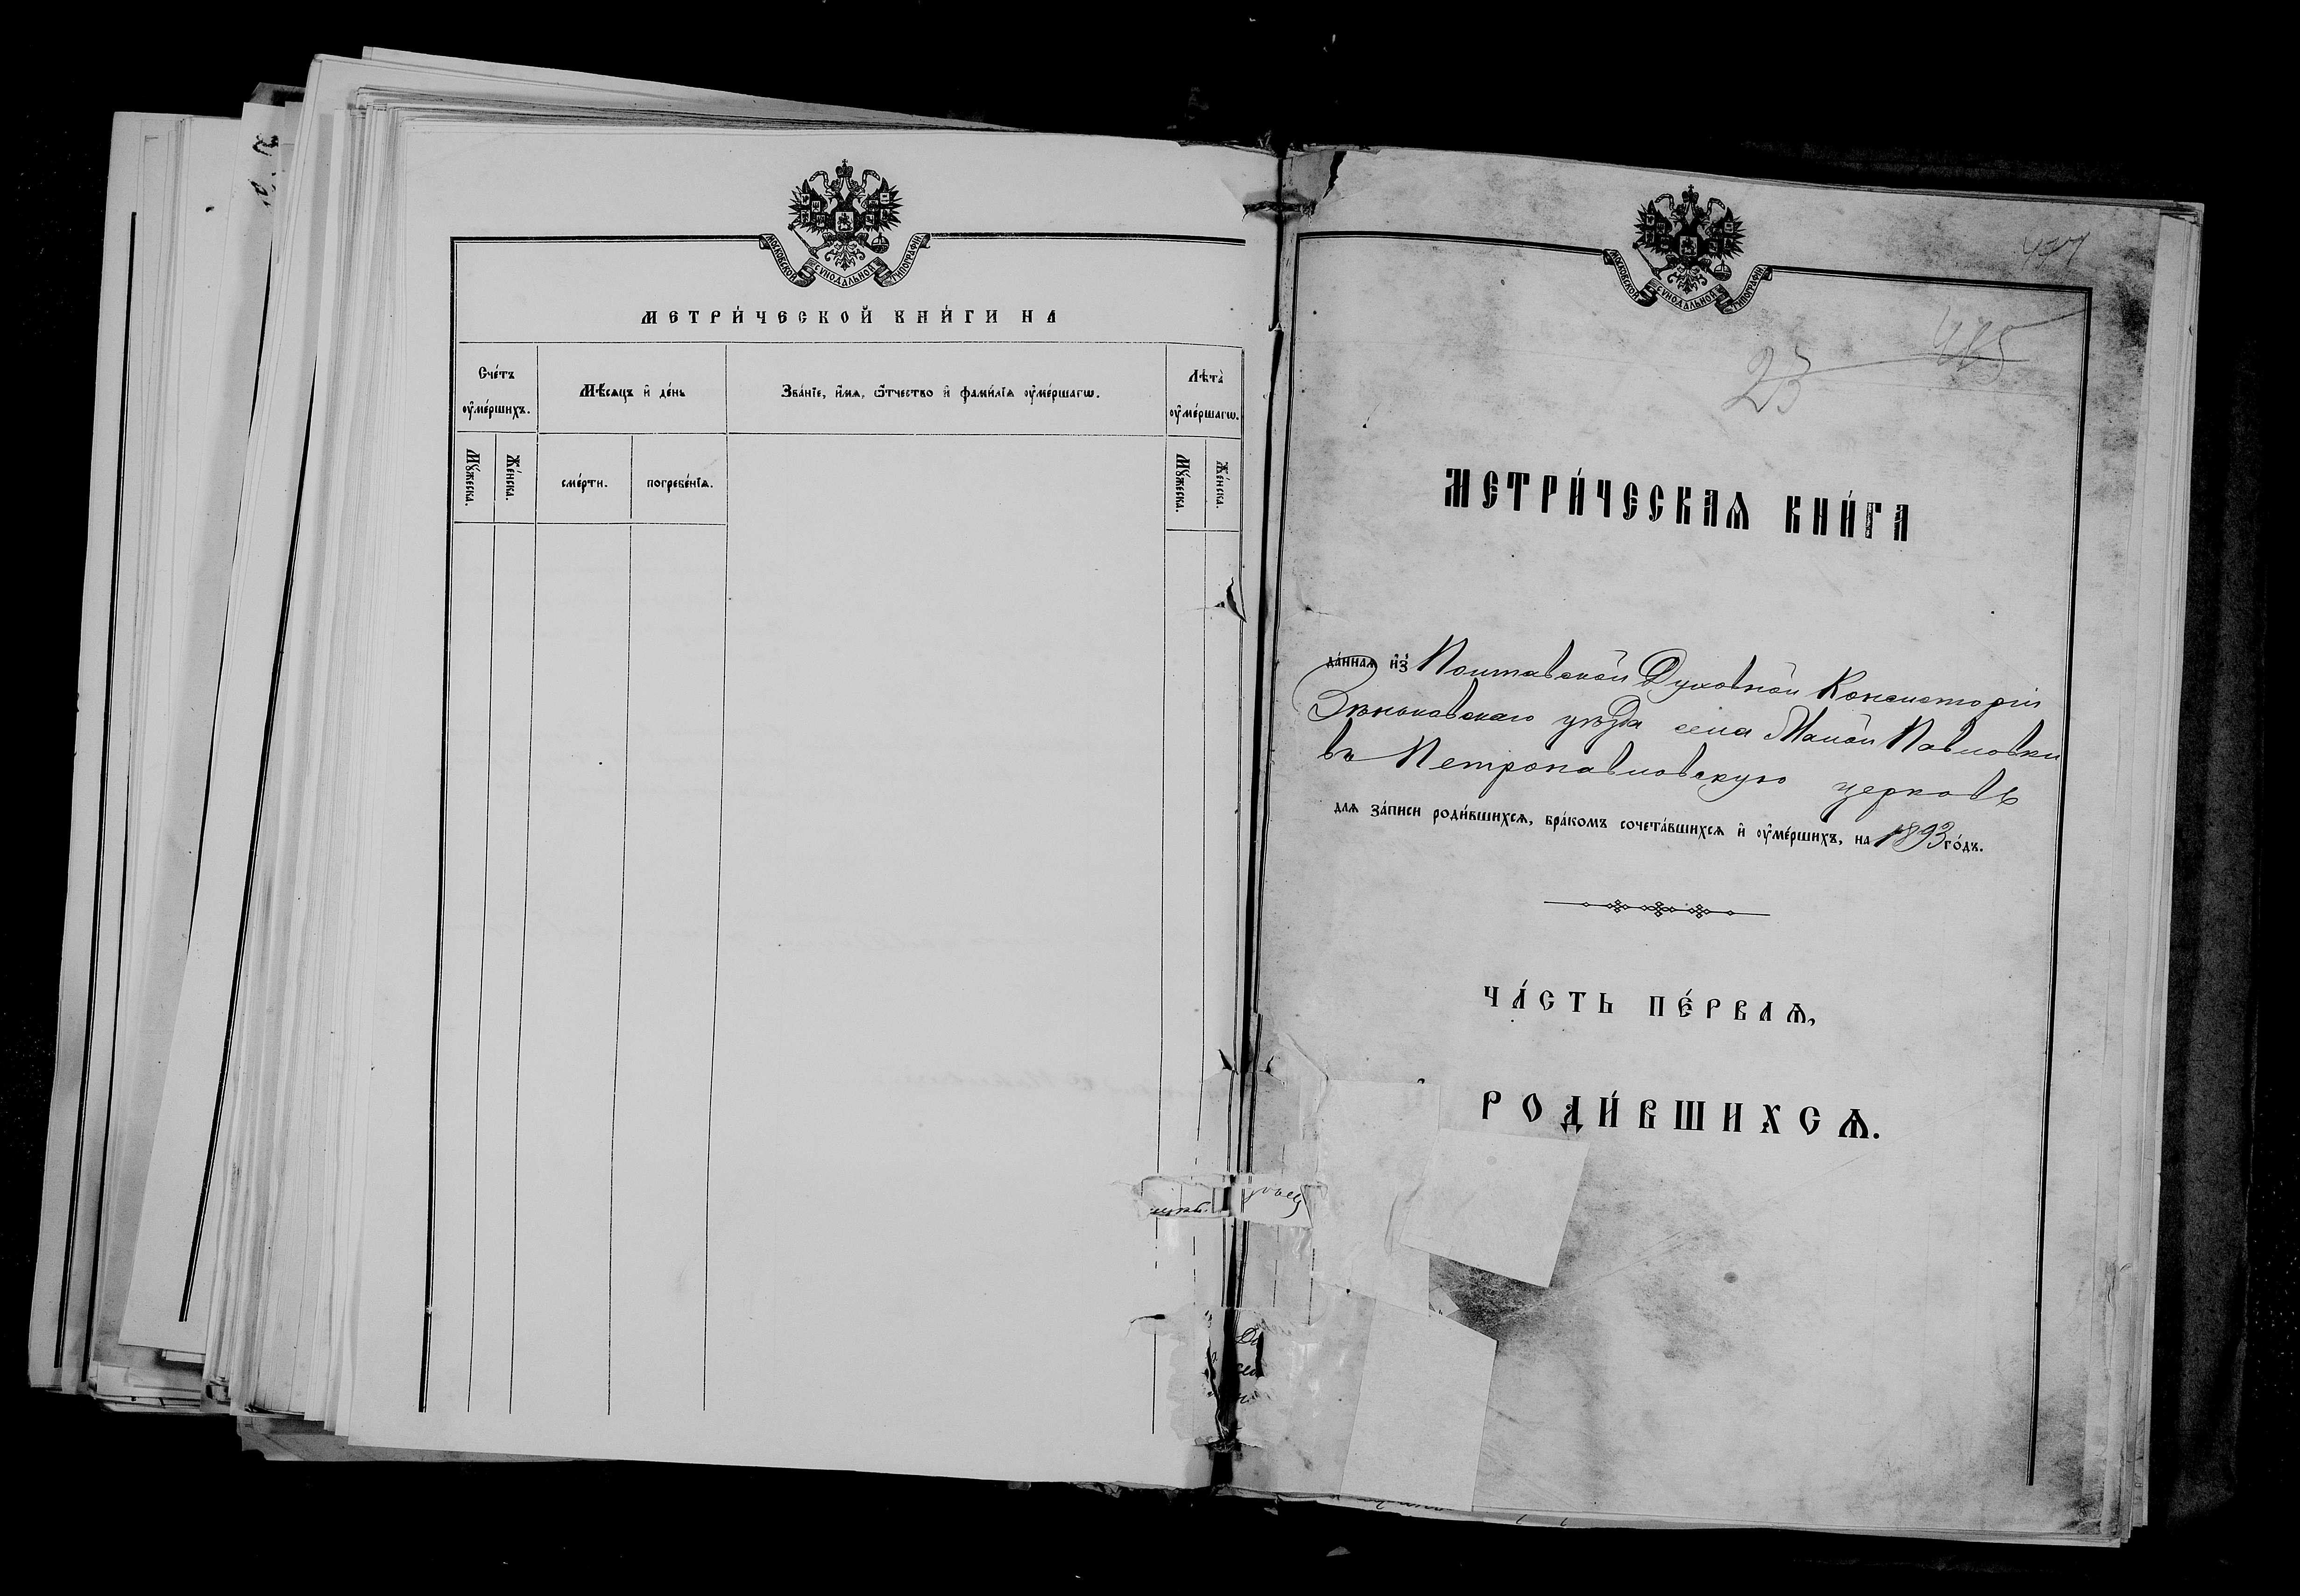 МОСКОВСКОЙ СѴНОДАЛЬНОЙ ТИПОГРАФІИ
МЕТРИ́ЧЕСКОЙ КНИ́ГИ НА
Сче́тъ ᲂу҆ме́ршихъ.
Мѣ́сяцъ и҆ де́нь
Зва́нїе, и҆́мѧ, ѻ҆́тчество и҆ фами́лїѧ ᲂу҆ме́ршагѡ.
Лѣта̀ ᲂу҆ме́ршагѡ.
Мꙋ́жеска.
Же́нска.
сме́рти.
погребе́нїѧ.
Мꙋ́жеска.
Же́нска.
МОСКОВСКОЙ СѴНОДАЛЬНОЙ ТИПОГРАФІИ
23
МЕТРИ́ЧЕСКАѦ КНИ́ГА
да́ннаѧ и҆з̾ Полтавской Духовной Консисторіи
Зѣньковскаго уѣзда села Малой Павловки
въ Петропавловскую церковь
длѧ за́писи роди́вшихсѧ, бра́комъ сочета́вшихсѧ и҆ ᲂу҆ме́ршихъ, на 1893 го́дъ.
ЧА́СТЬ ПЕ́РВАѦ,
РОДИ́ВШИХСѦ.